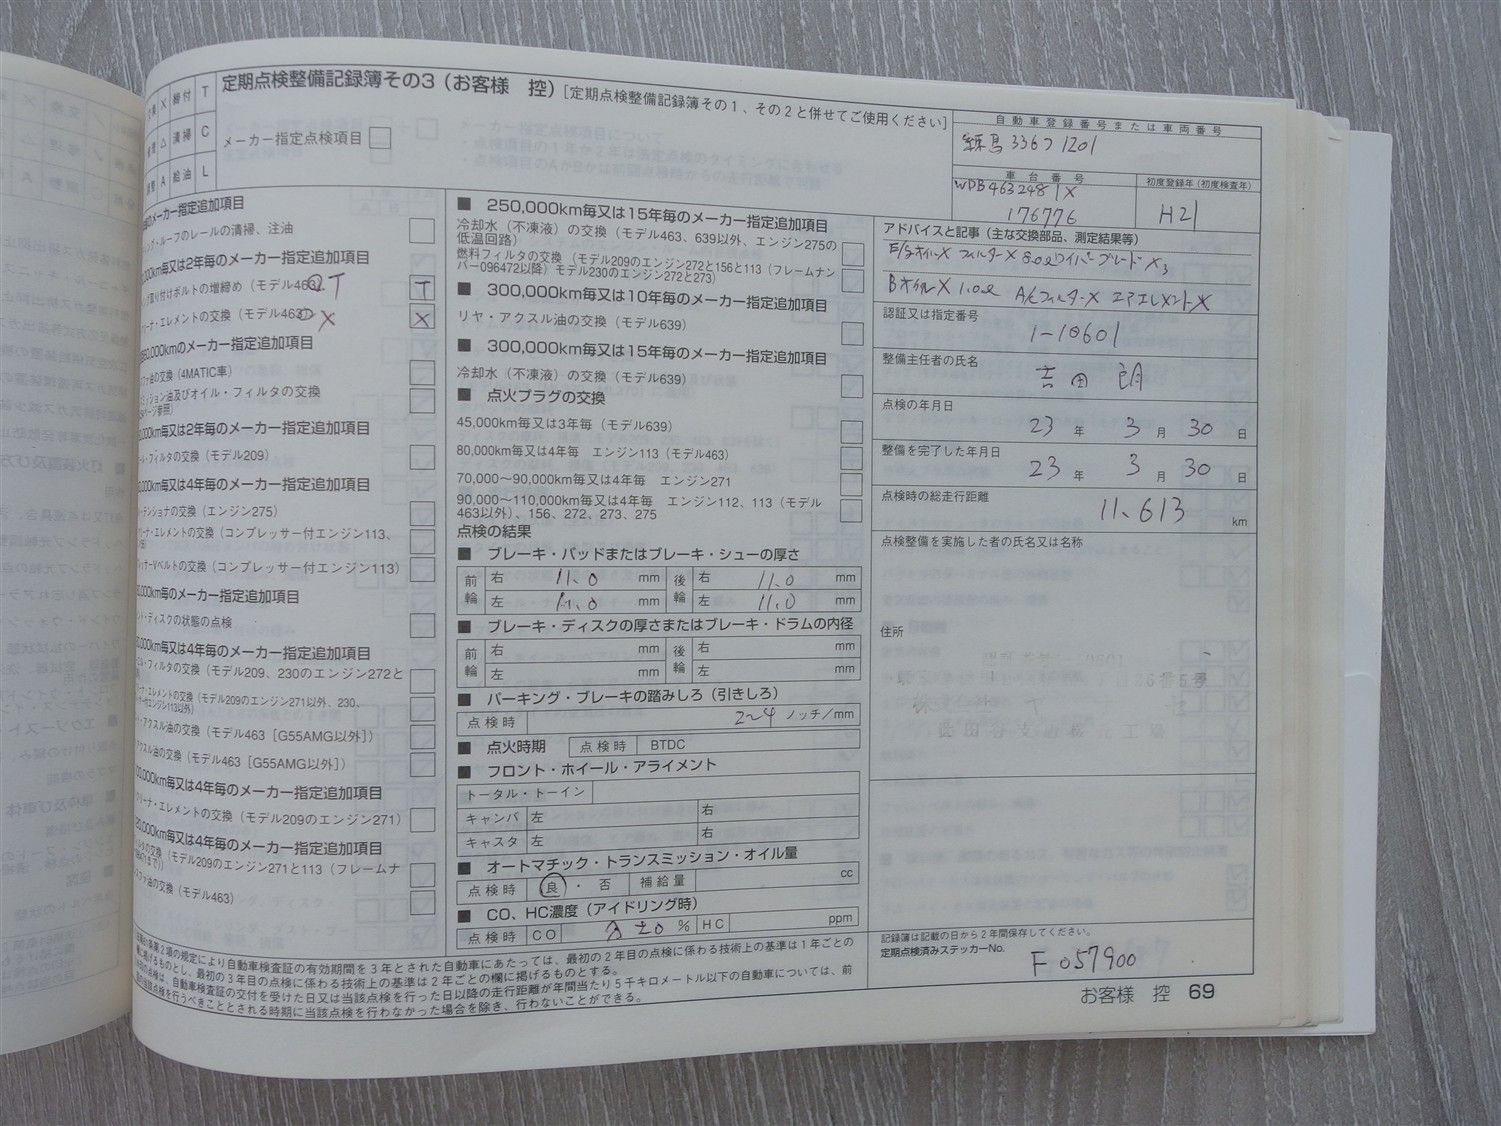 定期点検整備記録簿その3(お客様 控)[定期点検整備記録簿その1、その2と併せてご使用ください]
締付 T
清掃 C
給油 L
メーカー指定点検項目
自動車登録番号または車両番号
練馬 336 フ 1201
車台番号
WDB4632481X
176776
初度登録年(初度検査年)
H21
メーカー指定追加項目
ループのレールの清掃、注油
000km毎又は2年毎のメーカー指定追加項目
取り付けボルトの増締め(モデル463) T
T
リーナ・エレメントの交換(モデル463) X
X
60,000kmのメーカー指定追加項目
ファ油の交換(4MATIC車)
ミッション油及びオイル・フィルタの交換
ページ参照)
000km毎又は2年毎のメーカー指定追加項目
ール・フィルタの交換(モデル209)
000km毎又は4年毎のメーカー指定追加項目
ーテンショナの交換(エンジン275)
リーナ・エレメントの交換(コンプレッサー付エンジン113、
ッサーVベルトの交換(コンプレッサー付エンジン113)
000km毎のメーカー指定追加項目
ント・ディスクの状態の点検
000km毎又は4年毎のメーカー指定追加項目
エル・フィルタの交換(モデル209、230のエンジン272と
ーナ・エレメントの交換(モデル209のエンジン271以外、230、
ー付エンジン113以外)
ト・アクスル油の交換(モデル463[G55AMG以外])
アクスル油の交換(モデル463[G55AMG以外])
00,000km毎又は4年毎のメーカー指定追加項目
クリーナ・エレメントの交換(モデル209のエンジン271)
20,000km毎又は4年毎のメーカー指定追加項目
ルタの交換(モデル209のエンジン271と113(フレームナ
スファ油の交換(モデル463)
■ 250,000km毎又は15年毎のメーカー指定追加項目
冷却水(不凍液)の交換(モデル463、639以外、エンジン275の
低温回路)
燃料フィルタの交換(モデル209のエンジン272と156と113(フレームナン
バー096472以降)モデル230のエンジン272と273)
■ 300,000km毎又は10年毎のメーカー指定追加項目
リヤ・アクスル油の交換(モデル639)
■ 300,000km毎又は15年毎のメーカー指定追加項目
冷却水(不凍液)の交換(モデル639)
■ 点火プラグの交換
45,000km毎又は3年毎(モデル639)
80,000km毎又は4年毎 エンジン113(モデル463)
70,000~90,000km毎又は4年毎 エンジン271
90,000~110,000km毎又は4年毎 エンジン112、113(モデル
463以外)、156、272、273、275
点検の結果
■ ブレーキ・パッドまたはブレーキ・シューの厚さ
前輪 右 11.0 mm 後輪 右 11.0 mm
左 11.0 mm 左 11.0 mm
■ ブレーキ・ディスクの厚さまたはブレーキ・ドラムの内径
前輪 右 mm 後輪 右 mm
左 mm 左 mm
■ パーキング・ブレーキの踏みしろ(引きしろ)
点検時 2~4 ノッチ/mm
■ 点火時期 点検時 BTDC
■ フロント・ホイール・アライメント
トータル・トーイン
キャンバ 左 右
キャスタ 左 右
■ オートマチック・トランスミッション・オイル量
点検時 良・否 補給量 cc
■ CO、HC濃度(アイドリング時)
点検時 CO % HC ppm
アドバイスと記事(主な交換部品、測定結果等)
E/gオイルX フィルターX 8.0ℓ ワイパーブレードX3
BオイルX 1.0ℓ A/CフィルターX エアエレメントX
認証又は指定番号
1-10601
整備主任者の氏名
吉田 朗
点検の年月日
23 年 3 月 30 日
整備を完了した年月日
23 年 3 月 30 日
点検時の総走行距離
11,613 km
点検整備を実施した者の氏名又は名称
住所
26番5号
記録簿は記載の日から2年間保存してください。
定期点検済みステッカーNo.
F 057900
第2項の規定により自動車検査証の有効期間を3年とされた自動車にあたっては、最初の2年目の点検に係わる技術上の基準は1年ごとの
に掲げるものとし、最初の3年目の点検に係わる技術上の基準は2年ごとの欄に掲げるものとする。
の点検は、自動車検査証の交付を受けた日又は当該点検を行った日以降の走行距離が年間当たり5千キロメートル以下の自動車については、前
該点検を行うべきこととされる時期に当該点検を行わなかった場合を除き、行わないことができる。
お客様 控 69